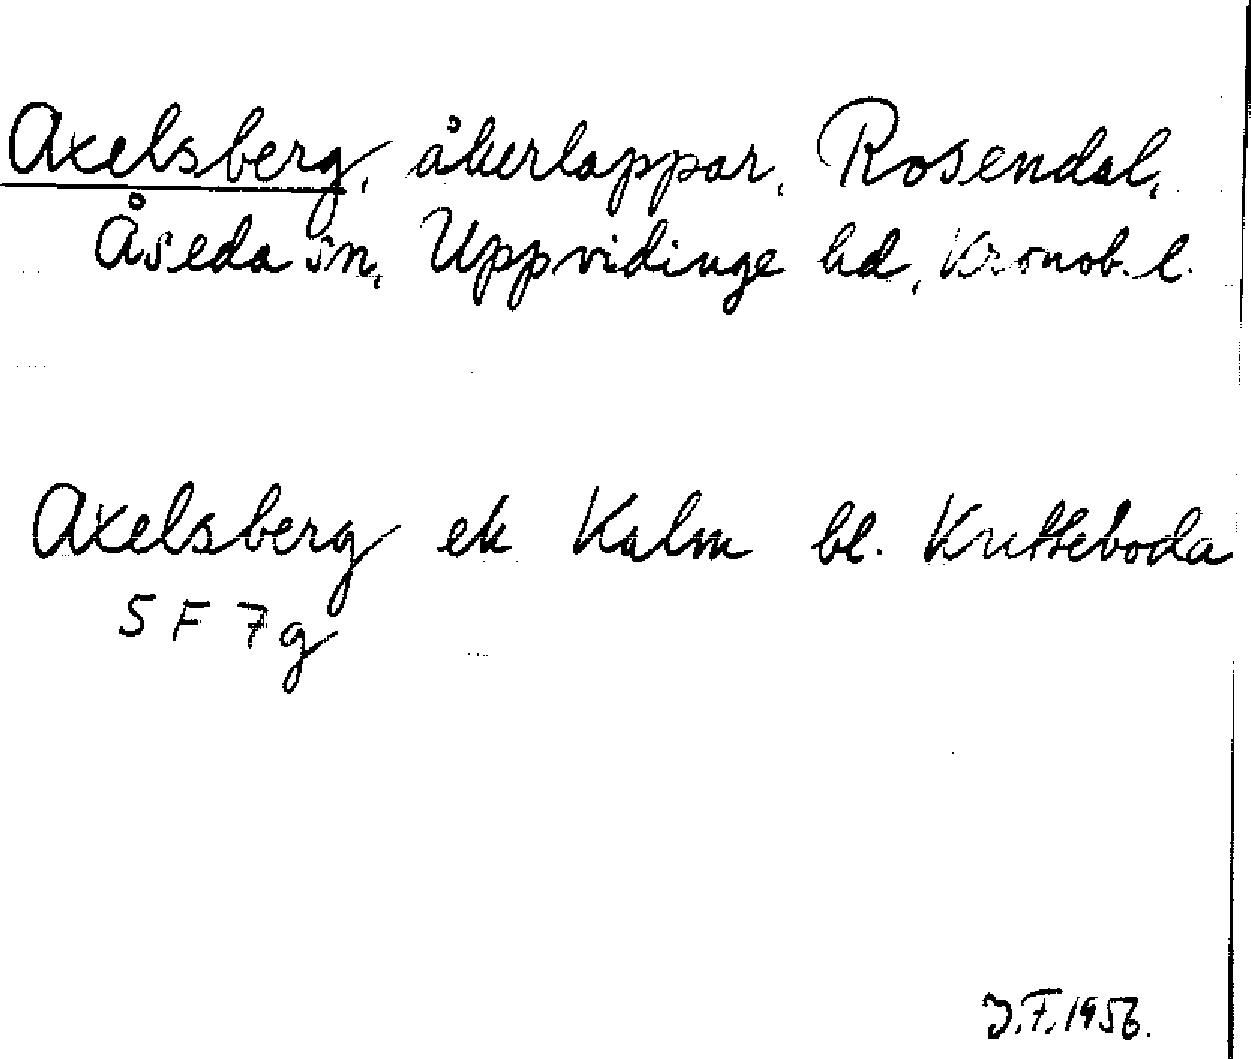 Axelsberg, åkerlappar, Rosendal,
Åseda sn, Uppvidinge hd, Kronob. l.
Axelsberg ek Kalm bl. Kritteboda
5 F 7 g
J.F. 1956.